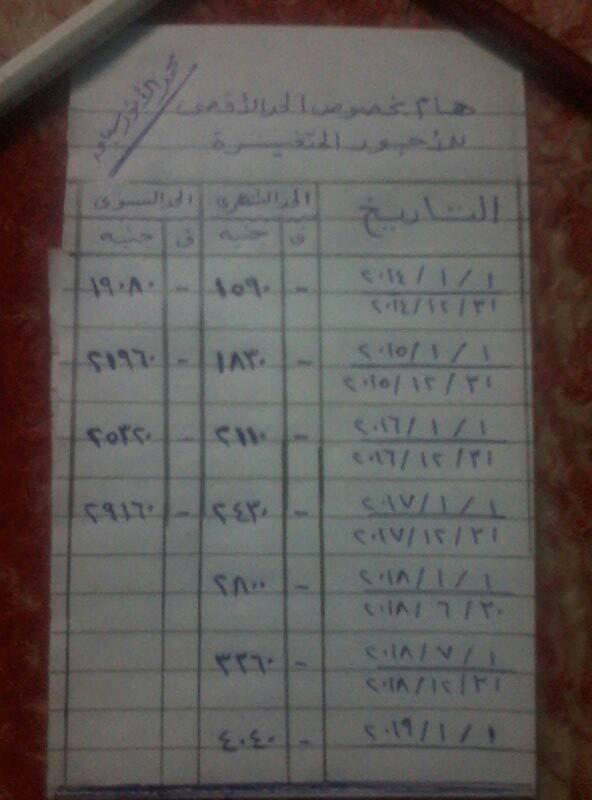 هام بخصوص الحد الأقصى
للأجور المتغيرة
التاريخ الحد الشهرى الحد السنوى
ق جنيه ق جنيه
١ / ١ / ٢٠١٤ - ١٥٩٠ - ١٩٠٨٠
٣١ / ١٢ / ٢٠١٤
١ / ١ / ٢٠١٥ - ١٨٣٠ - ٢١٩٦٠
٣١ / ١٢ / ٢٠١٥
١ / ١ / ٢٠١٦ - ٢١١٠ - ٢٥٣٢٠
٣١ / ١٢ / ٢٠١٦
١ / ١ / ٢٠١٧ - ٢٤٣٠ - ٢٩١٦٠
٣١ / ١٢ / ٢٠١٧
١ / ١ / ٢٠١٨ - ٢٨٠٠
٣٠ / ٦ / ٢٠١٨
١ / ٧ / ٢٠١٨ - ٣٣٦٠
٣١ / ١٢ / ٢٠١٨
١ / ١ / ٢٠١٩ - ٤٠٤٠